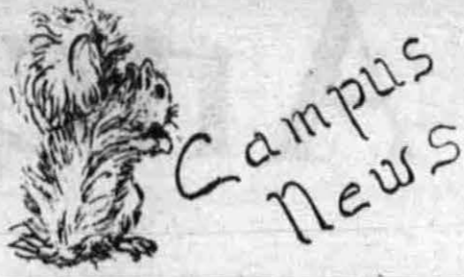 Campus
News